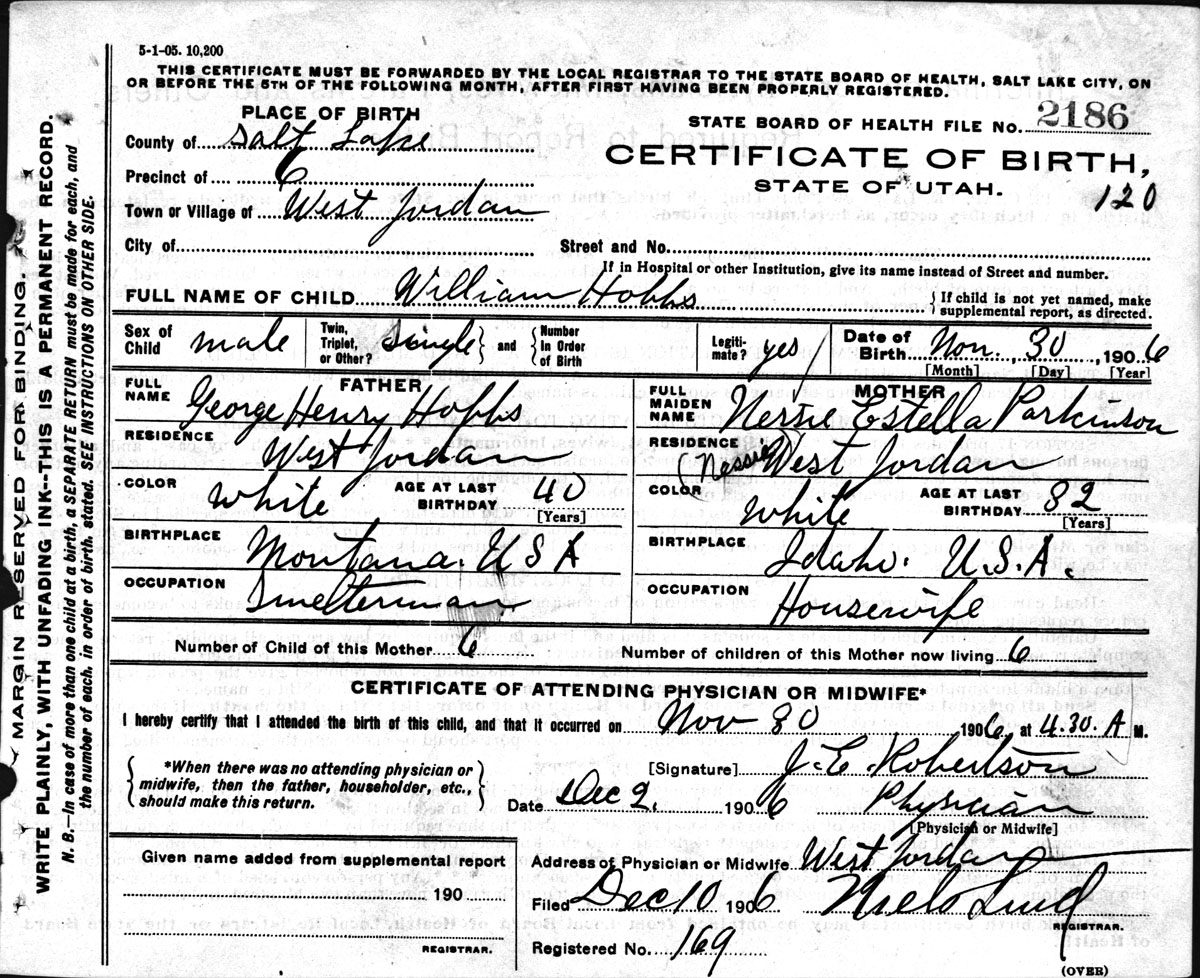 5-1-05. 10,200
THIS CERTIFICATE MUST BE FORWARDED BY THE LOCAL REGISTRAR TO THE STATE BOARD OF HEALTH, SALT LAKE CITY, ON
OR BEFORE THE 5TH OF THE FOLLOWING MONTH, AFTER FIRST HAVING BEEN PROPERLY REGISTERED.
PLACE OF BIRTH
STATE BOARD OF HEALTH FILE No. 2186
County of Salt Lake
CERTIFICATE OF BIRTH,
Precinct of 6
STATE OF UTAH.
120
Town or Village of West Jordan
City of Street and No.
If in Hospital or other Institution, give its name instead of Street and number.
FULL NAME OF CHILD William Hobbs { If child is not yet named, make
supplemental report, as directed.
Sex of Child male Twin, Triplet, or Other? Single } and { Number In Order of Birth Legiti- mate? yes Date of Birth Nov. 30 1906
[Month] [Day] [Year]
FATHER
FULL NAME George Henry Hobbs
RESIDENCE West Jordan
COLOR White AGE AT LAST BIRTHDAY 40
[Years]
BIRTHPLACE Montana. U S A
OCCUPATION Smelterman
MOTHER
FULL MAIDEN NAME Nessie Estella Parkinson
RESIDENCE (Nessie) West Jordan
COLOR White AGE AT LAST BIRTHDAY 32
[Years]
BIRTHPLACE Idaho. U.S.A.
OCCUPATION Housewife
Number of Child of this Mother 6 Number of children of this Mother now living 6
CERTIFICATE OF ATTENDING PHYSICIAN OR MIDWIFE*
I hereby certify that I attended the birth of this child, and that it occurred on Nov 30 1906 at 4.30. A M.
{ *When there was no attending physician or
midwife, then the father, householder, etc.,
should make this return. }
[Signature] J. E. Robertson
Date Dec 2, 1906 Physician
[Physician or Midwife]
Given name added from supplemental report
190
REGISTRAR.
Address of Physician or Midwife West Jordan
Filed Dec 10 1906 Niels Lind
REGISTRAR.
Registered No. 169
(OVER)
MARGIN RESERVED FOR BINDING.
WRITE PLAINLY, WITH UNFADING INK--THIS IS A PERMANENT RECORD.
N. B.—In case of more than one child at a birth, a SEPARATE RETURN must be made for each, and
the number of each, in order of birth, stated. SEE INSTRUCTIONS ON OTHER SIDE.